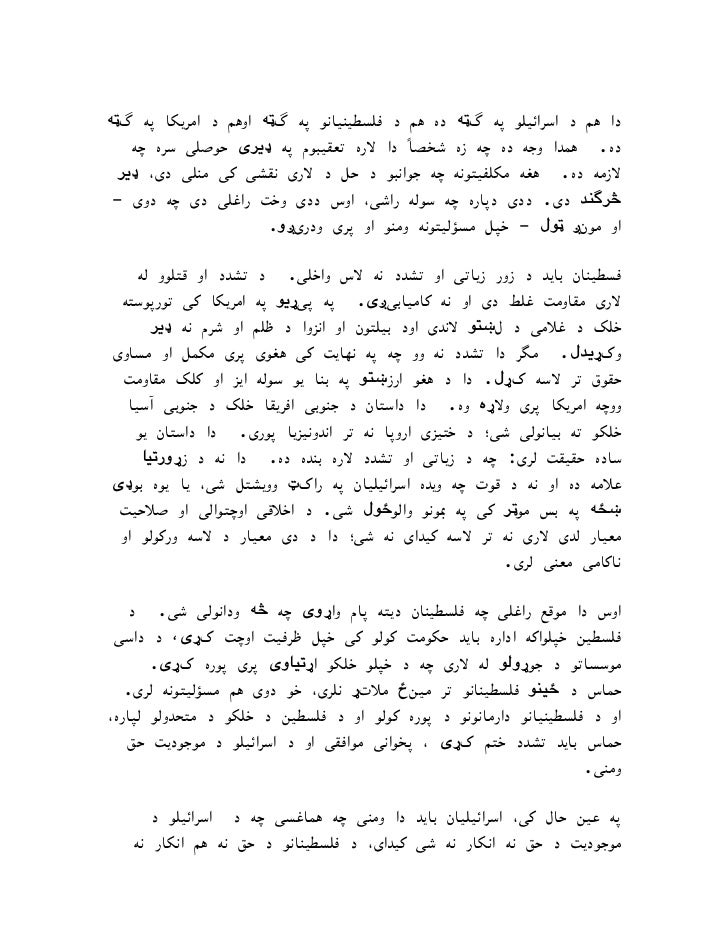 دا هم د اسرائیلو په ګټه ده هم د فلسطینیانو په ګټه اوهم د امریکا په ګټه
ده. همدا وجه ده چه زه شخصاً دا لاره تعقیبوم په ډیری حوصلی سره چه
لازمه ده. هغه مکلفیتونه چه جوانبو د حل د لاری نقشی کی منلی دی، ډیر
څرګند دی. ددی دپاره چه سوله راشی، اوس ددی وخت راغلی دی چه دوی –
او مونږ ټول – خپل مسؤلیتونه ومنو او پری ودریږو.

فسطینان باید د زور زیاتی او تشدد نه لاس واخلی. د تشدد او قتلوو له
لاری مقاومت غلط دی او نه کامیابیږی. په پیړیو په امریکا کی تورپوسته
خلک د غلامی د لښتو لاندی اود بیلتون او انزوا د ظلم او شرم نه ډیر
وکړیدل. مگر دا تشدد نه وو چه په نهایت کی هغوی پری مکمل او مساوی
حقوق تر لاسه کړل. دا د هغو ارزښتو په بنا یو سوله ایز او کلک مقاومت
ووچه امریکا پری ولاړه وه. دا داستان د جنوبی افریقا خلک د جنوبی آسیا
خلکو ته بیانولی شی؛ د ختیزی اروپا نه تر اندونیزیا پوری. دا داستان یو
ساده حقیقت لری: چه د زیاتی او تشدد لاره بنده ده. دا نه د زړورتیا
علامه ده او نه د قوت چه ویده اسرائیلیان په راکټ وویشتل شی، یا یوه بوډی
ښځه په بس موټر کی په بمونو والوځول شی. د اخلاقی اوچتوالی او صلاحیت
معیار لدی لاری نه تر لاسه کیدای نه شی؛ دا د دی معیار د لاسه ورکولو او
ناکامی معنی لری.

اوس دا موقع راغلی چه فلسطینان دیته پام واړوی چه څه ودانولی شی. د
فلسطین خپلواکه اداره باید حکومت کولو کی خپل ظرفیت اوچت کړی، د داسی
موسساتو د جوړولو له لاری چه د خپلو خلکو اړتیاوی پری پوره کړی.
حماس د ځینو فلسطینانو تر مینځ ملاتړ نلری، خو دوی هم مسؤلیتونه لری.
او د فلسطینیانو دارمانونو د پوره کولو او د فلسطین د خلکو د متحدولو لپاره،
حماس باید تشدد ختم کړی ، پخوانی موافقی او د اسرائیلو د موجودیت حق
ومنی.

په عین حال کی، اسرائیلیان باید دا ومنی چه هماغسی چه د اسرائیلو د
موجودیت د حق نه انکار نه شی کیدای، د فلسطینانو د حق نه هم انکار نه